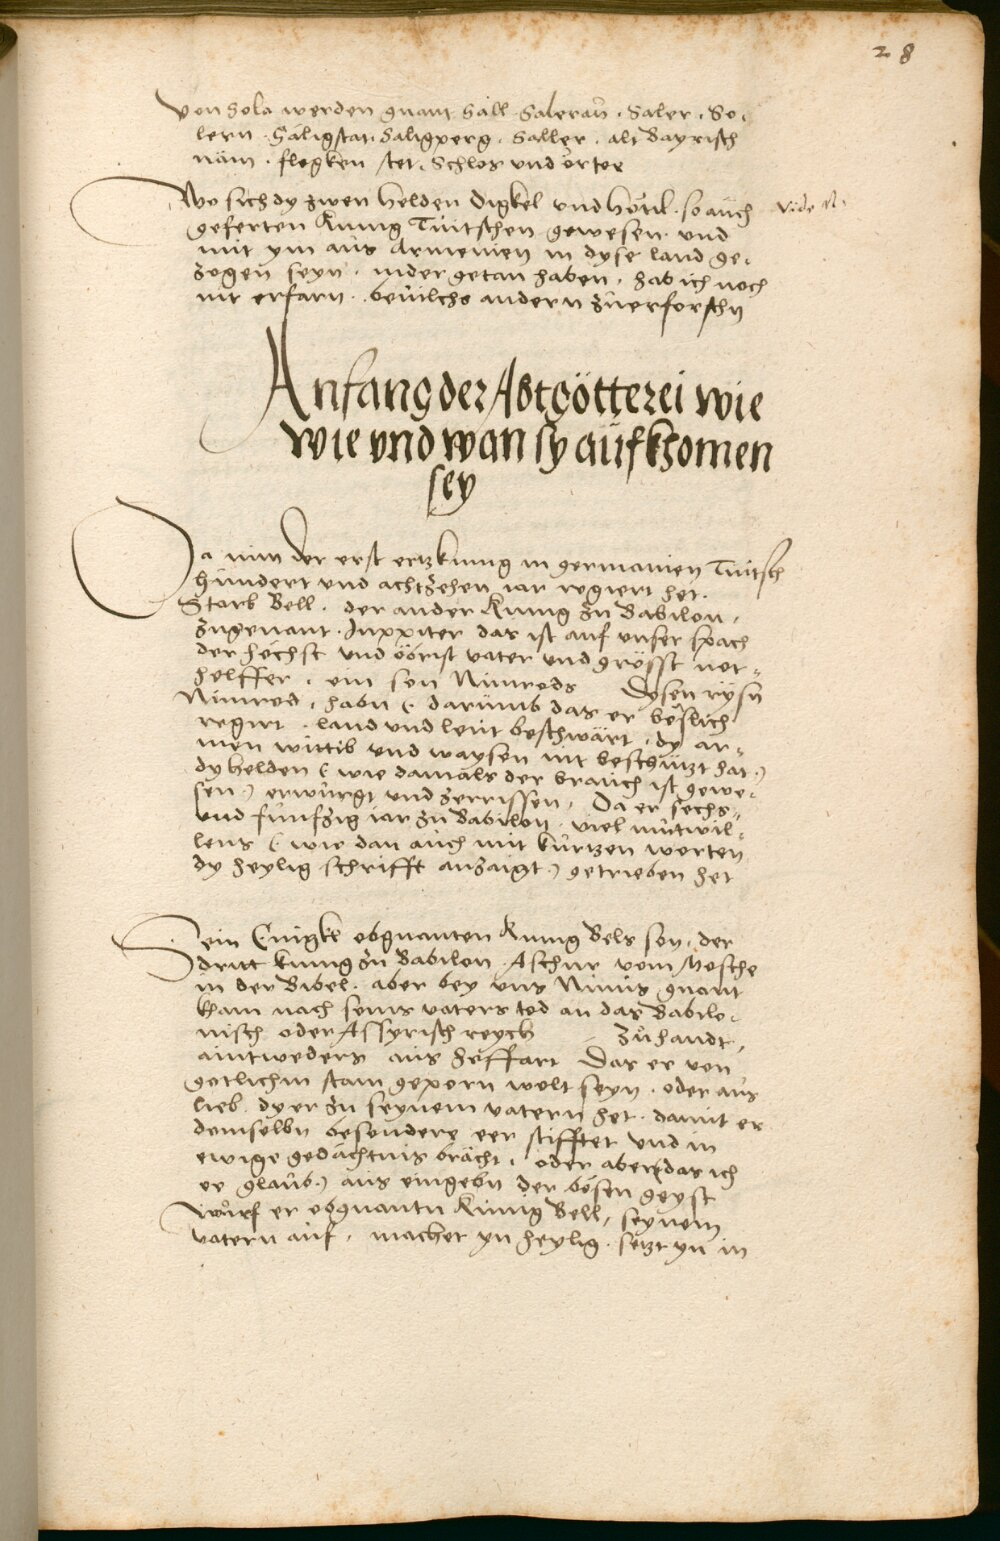 28
Von Sala werden gnant Sall Salerau . Saler . So,
lern . Saligstat . Saligperg . Saller . alt Bayrisch
näm . flegken stet . Schlos und örter
Wo sich dy zwen helden Digkel und Hötil . so auch
geferten Kunig Tuitschen gewesen . und
mit ym aus Armenien in dyse land ge,
zogen seyn . nider getan haben . hab ich noch
nit erfarn . bevilchs andern zuerforschn
vide
Anfang der Abtgötterei wie
wie vnd wan sy aüfkhomen
sey
Da nun der erst ertzkunig in germanien Tuitsch
hundert und achtzehen iar regiert het .
Starb Bell . der ander Kunig zu Babilon ,
zugenant . Juppiter das ist auf unser sprach
der höchst und öbrist vater und grösst not=
helffer , ein son Nimrods Dysen rysn
Nimrod , habn ( darumb das er böslich
regirt . land und leut beschwärt , dy ar=
men wittib und waysen nit beschutzt hat )
dy helden ( wie damals der brauch ist gewe,
sen ) erwurgt und zerrissen . Da er sechs=
und funfzig iar zu Babilon . viel mutwil=
lens ( wie dan auch mit kurtzen worten
dy heylig schrifft anzaigt ) getrieben het
Sein Enigkl obgnanten Kunig Bels son , der
dritt kunig zu Babilon . Aschur vom Mosche
in der Bibel . aber bey uns Ninus gnant
kham nach seins vaters tod an das Babilo,
nisch oder Assyrisch reych zuhandt ,
aintweders aus hoffart Das er von
gotlichm stam geporn wolt seyn . oder aus
lieb . dy er zu seynem vatern het . damit er
demselbn besondere eer stifftet und in
ewige gedächtnis brächt , oder aber ( das ich
ee glaub ) aus eingebn der bösen geyst
Würf er obgnantn Kunig Bell , seynem
vatern auf , machet yn heylig . setzt yn in